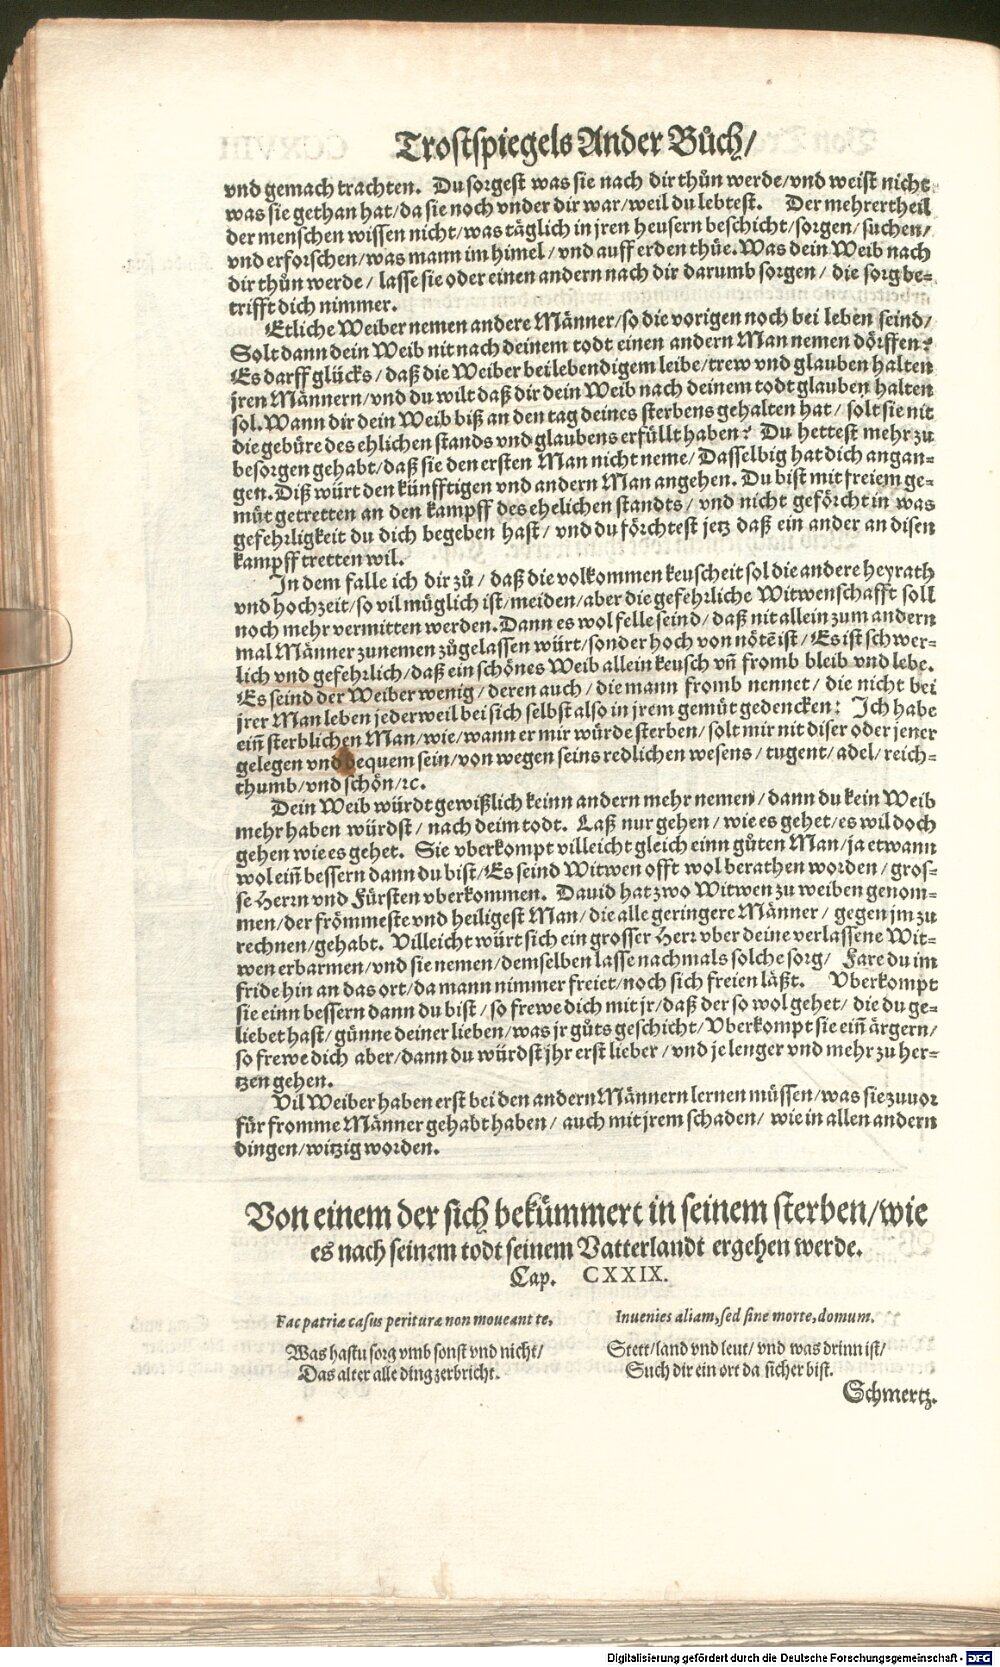 Trostspiegels Ander Bůch/
vnd gemach trachten. Du sorgest was sie nach dir thůn werde/vnd weist nicht
was sie gethan hat/da sie noch vnder dir war/weil du lebtest. Der mehrertheil
der menschen wissen nicht/was täglich in jren heusern beschicht/sorgen/suchen/
vnd erforschen/was mann im himel/vnd auff erden thüe. Was dein Weib nach
dir thůn werde/lasse sie oder einen andern nach dir darumb sorgen/die sorg be-
trifft dich nimmer.
Etliche Weiber nemen andere Männer/so die vorigen noch bei leben seind/
Solt dann dein Weib nit nach deinem todt einen andern Man nemen dörffen?
Es darff glücks/daß die Weiber bei lebendigem leibe/trew vnd glauben halten
jren Männern/vnd du wilt daß dir dein Weib nach deinem todt glauben halten
sol. Wann dir dein Weib biß an den tag deines sterbens gehalten hat/solt sie nit
die gebüre des ehlichen stands vnd glaubens erfüllt haben? Du hettest mehr zu
besorgen gehabt/daß sie den ersten Man nicht neme/Dasselbig hat dich angan-
gen. Diß würt den künfftigen vnd andern Man angehen. Du bist mit freiem ge-
müt getretten an den kampff des ehelichen standts/vnd nicht geförcht in was
gefehrligkeit du dich begeben hast/vnd du förchtest jetz daß ein ander an disen
kampff tretten wil.
In dem falle ich dir zů/daß die volkommen keuscheit sol die andere heyrath
vnd hochzeit/so vil müglich ist/meiden/aber die gefehrliche Witwenschafft soll
noch mehr vermitten werden. Dann es wol felle seind/daß nit allein zum andern
mal Männer zunemen zůgelassen würt/sonder hoch von nötē ist/Es ist schwer-
lich vnd gefehrlich/daß ein schönes Weib allein keusch vñ fromb bleib vnd lebe.
Es seind der Weiber wenig/deren auch/die mann fromb nennet/die nicht bei
jrer Man leben jederweil bei sich selbst also in jrem gemüt gedencken: Ich habe
eiñ sterblichen Man/wie/wann er mir würde sterben/solt mir nit diser oder jener
gelegen vnd bequem sein/von wegen seins redlichen wesens/tugent/adel/reich-
thumb/vnd schön/ꝛc.
Dein Weib würdt gewißlich keinn andern mehr nemen/dann du kein Weib
mehr haben würdst/nach deim todt. Laß nur gehen/wie es gehet/es wil doch
gehen wie es gehet. Sie vberkompt villeicht gleich einn gůten Man/ja etwann
wol eiñ bessern dann du bist/Es seind Witwen offt wol berathen worden/gros-
se Herrn vnd Fürsten vberkommen. Dauid hat zwo Witwen zu weiben genom-
men/der frömmeste vnd heiligest Man/die alle geringere Männer/gegen jm zu
rechnen/gehabt. Villeicht würt sich ein grosser Herr vber deine verlassene Wit-
wen erbarmen/vnd sie nemen/demselben lasse nachmals solche sorg/Fare du im
fride hin an das ort/da mann nimmer freiet/noch sich freien läßt. Vberkompt
sie einn bessern dann du bist/so frewe dich mit jr/daß der so wol gehet/die du ge-
liebet hast/günne deiner lieben/was jr gůts geschicht/Vberkompt sie eiñ ärgern/
so frewe dich aber/dann du würdst jhr erst lieber/vnd je lenger vnd mehr zu her-
tzen gehen.
Vil Weiber haben erst bei den andern Männern lernen müssen/was sie zuuor
für fromme Männer gehabt haben/auch mit jrem schaden/wie in allen andern
dingen/witzig worden.
Von einem der sich bekümmert in seinem sterben/wie
es nach seinem todt seinem Vatterlandt ergehen werde.
Cap. CXXIX.
Fac patriæ casus perituræ non moueant te,
Inuenies aliam, sed sine morte, domum.
Was hastu sorg vmb sonst vnd nicht/
Das alter alle ding zerbricht.
Stett/land vnd leut/vnd was drinn ist/
Such dir ein ort da sicher bist.
Schmertz.
Digitalisierung gefördert durch die Deutsche Forschungsgemeinschaft - DFG